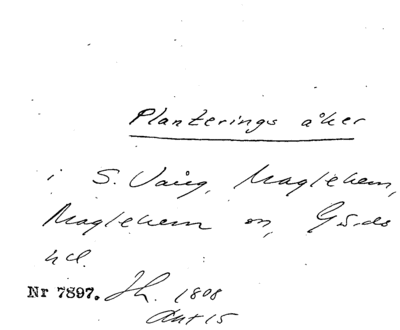 Planterings åker
i S. Vång, Maglehem,
Maglehem sn, Gärds
hd.
Nr 7897. Jh. 1808
Akt 15